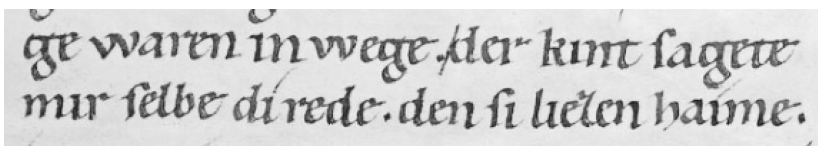 ge waren in wege. der kint ſagete
mir ſelbe di rede. den ſi liezen haime.